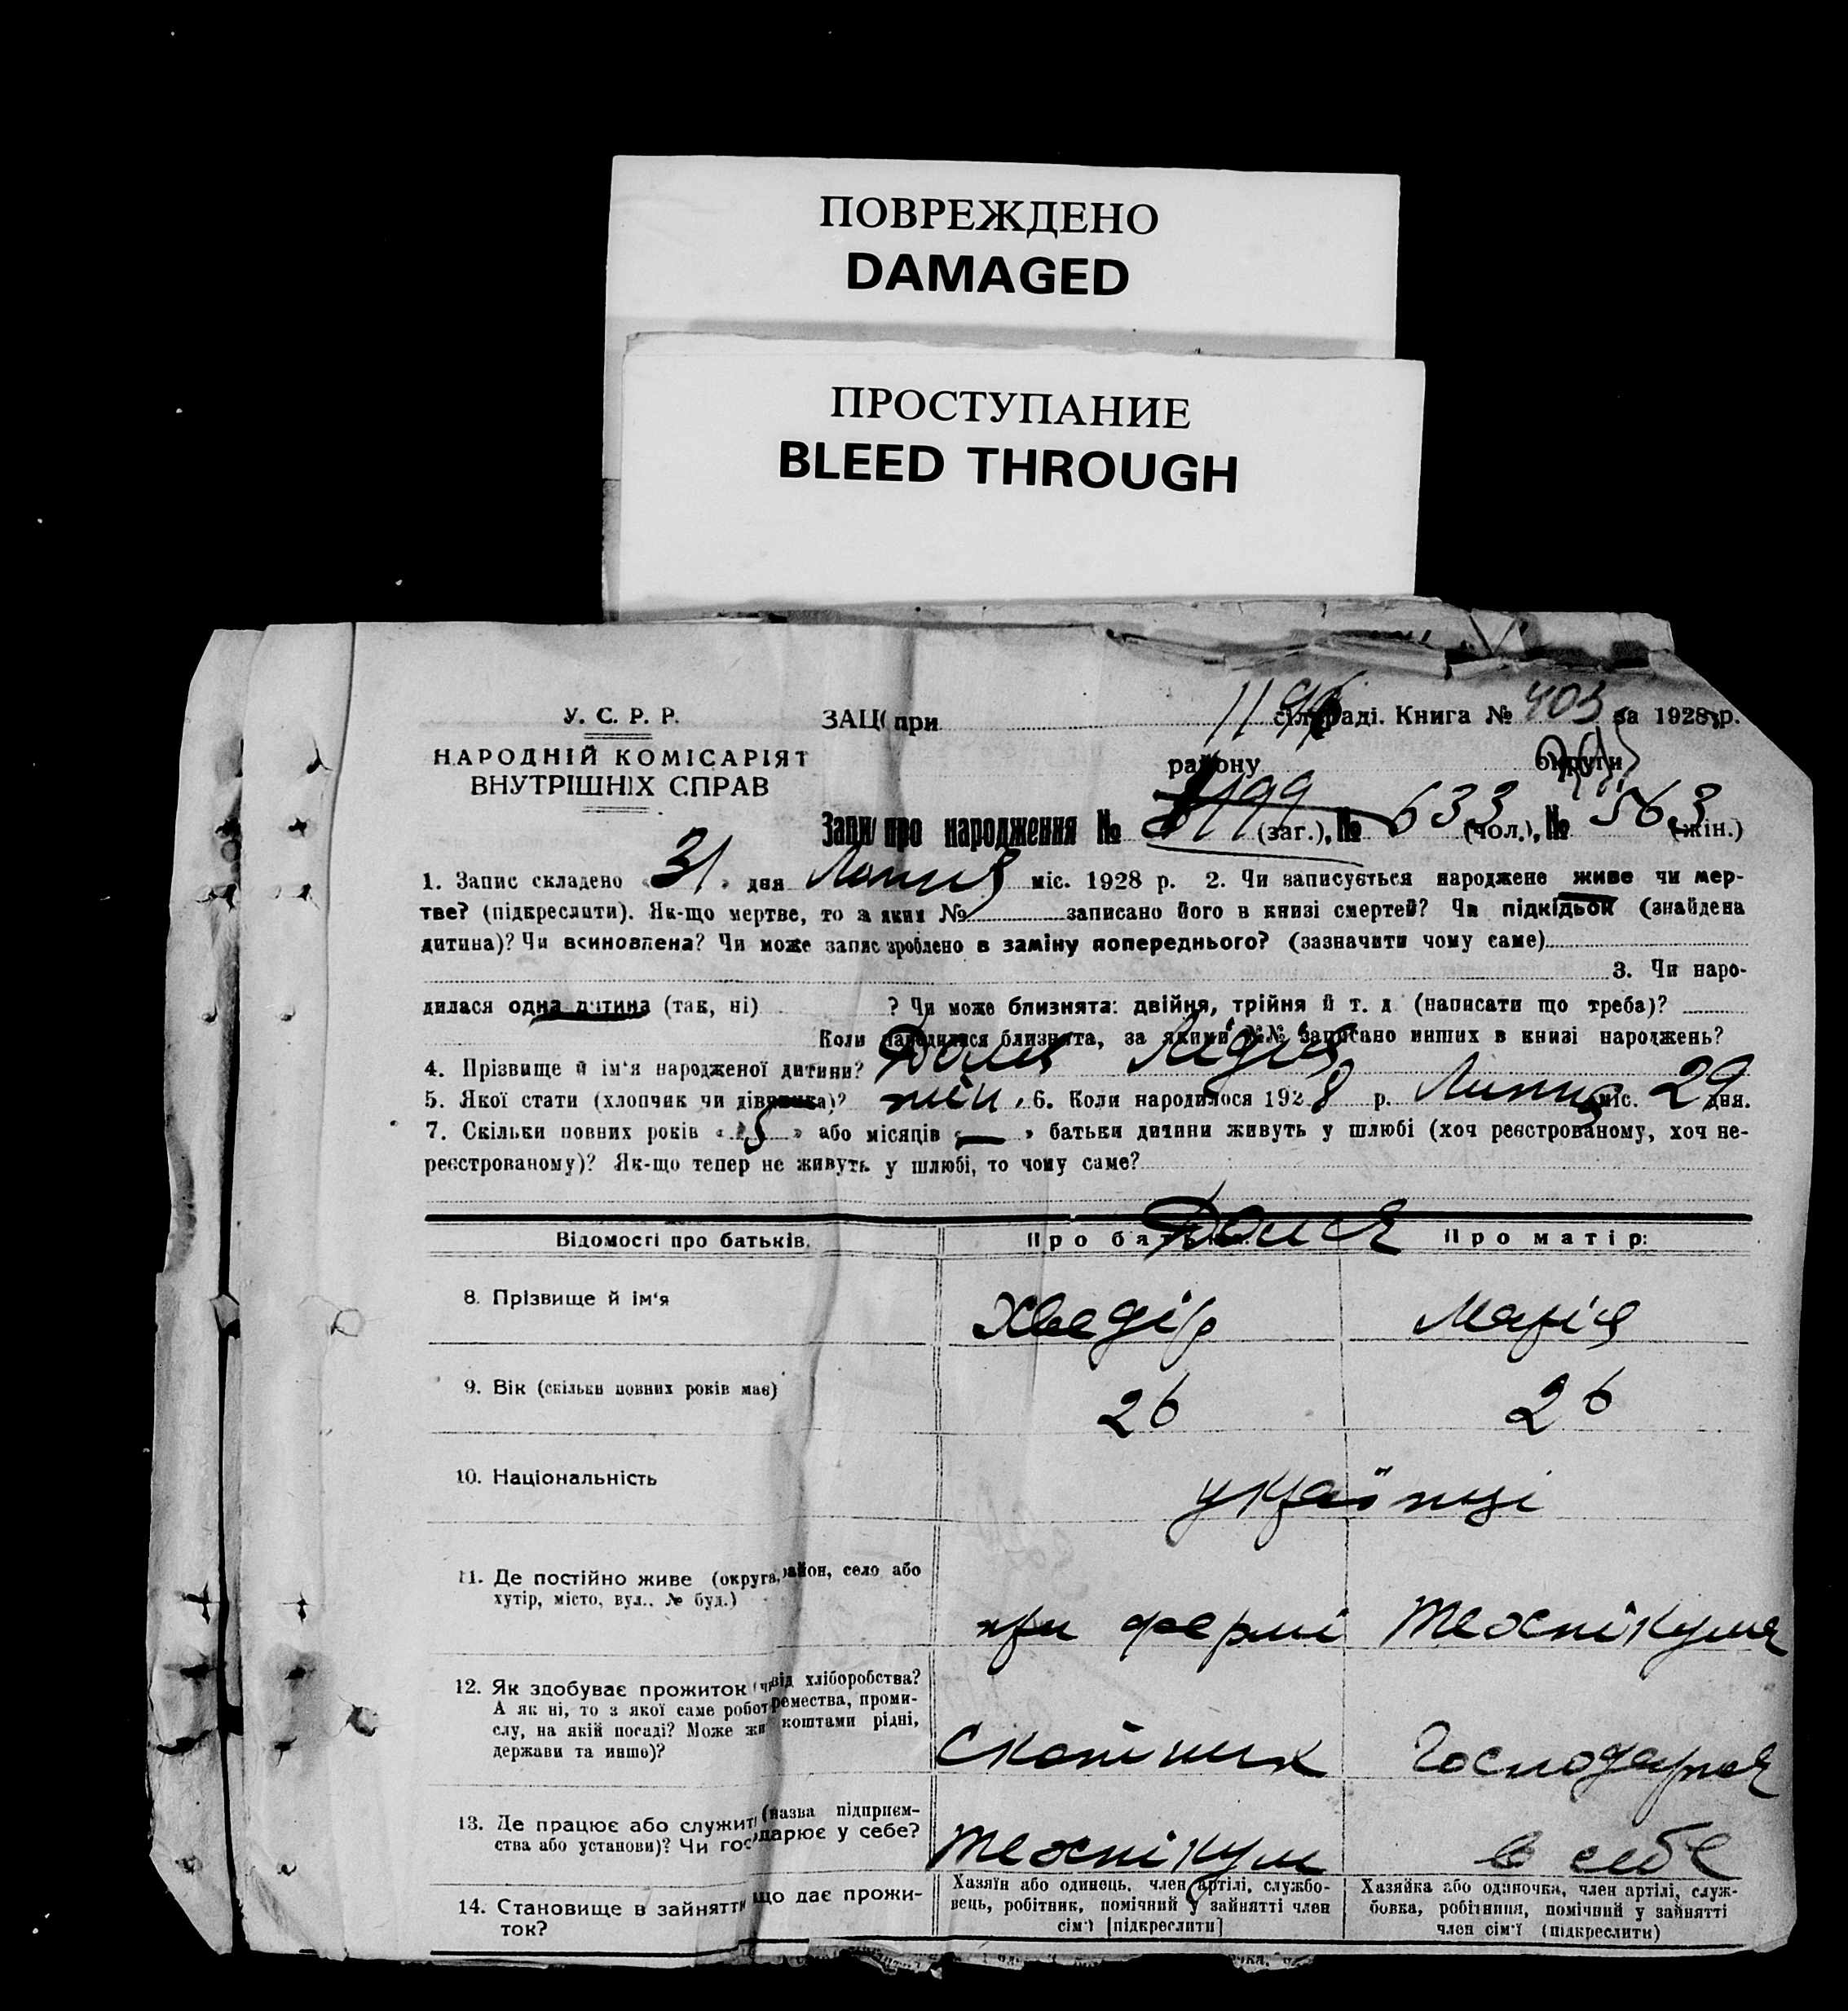 ПОВРЕЖДЕНО
DAMAGED
ПРОСТУПАНИЕ
BLEED THROUGH
У. С. Р. Р.
НАРОДНІЙ КОМІСАРІЯТ
ВНУТРІШНІХ СПРАВ
ЗАЦ при сільраді. Книга № 403 за 1928 р.
району округи
Запи про народження № 1199 (заг.), № 633 (чол.), № 563 (жін.)
1. Запис складено « 31 » дня Липня міс. 1928 р. 2. Чи записується народжене живе чи мер-
тве? (підкреслити). Як-що мертве, то за яким № записано його в книзі смертей? Чи підкідьок (знайдена
дитина)? Чи всиновлена? Чи може запис зроблено в заміну попереднього? (зазначити чому саме)
3. Чи наро-
дилася одна дитина (так, ні) ? Чи може близнята: двійня, трійня й т. д. (написати що треба)?
Коли народилися близнята, за якими №№ записано инших в книзі народжень?
4. Прізвище й ім'я народженої дитини? Лідія
5. Якої стати (хлопчик чи дівчинка)? жін. 6. Коли народилося 1928 р. Липня міс. 29 дня.
7. Скільки повних років « 5 » або місяців « — » батьки дитини живуть у шлюбі (хоч реєстрованому, хоч не-
реєстрованому)? Як-що тепер не живуть у шлюбі, то чому саме?
Відомості про батьків. Про батька: Про матір:
8. Прізвище й ім'я Хведір Марія
9. Вік (скільки повних років має) 26 26
10. Національність українці
11. Де постійно живе (округа, район, село або
хутір, місто, вул., № буд.)
при фермі
12. Як здобуває прожиток (чи від хліборобства?
А як ні, то з якої саме робот ремества, проми-
слу, на якій посаді? Може жи коштами рідні,
держави та инше)?
Скотник Господарка
13. Де працює або служит (назва підприєм-
ства або установи)? Чи гос одарює у себе?
в себе
14. Становище в зайнятті що дає прожи-
ток?
Хазяїн або одинець, член артілі, службо-
вець, робітник, помічний у зайнятті член
сім'ї [підкреслити]
Хазяйка або одиночка, член артілі, служ-
бовка, робітниця, помічний у зайнятті
член сім'ї (підкреслити)